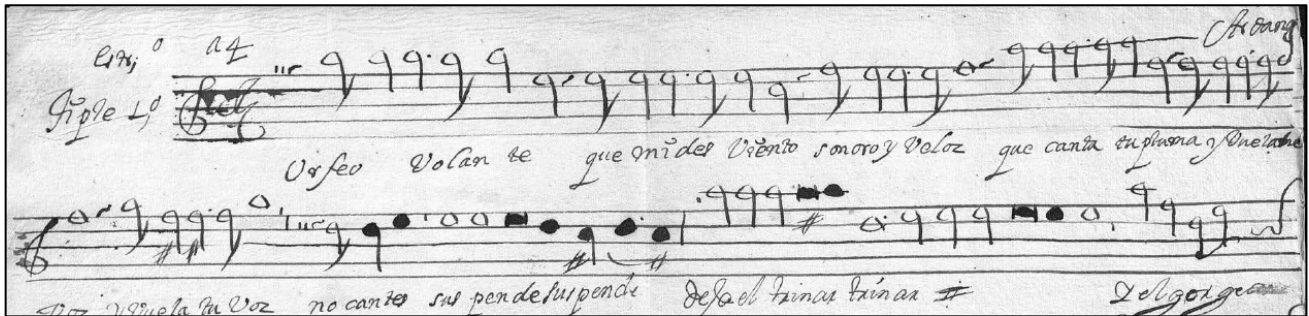 a 4
Tiple 1,º
Orfeo Volante que mides Viento sonoro y Veloz que canta tu pluma y Vuela
Voz y Vuela tu Voz no cantes suspende suspende deja el trinar trinar